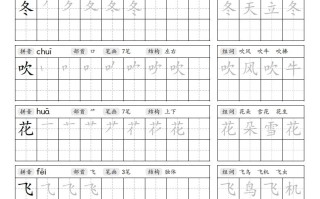 冬 冬 冬 冬 冬 冬
冬天立冬
拼音 chuī 部首 口 笔画 7笔 结构 左右
组词 吹风 吹牛 吹捧
吹 吹
吹风吹牛
拼音 huā 部首 艹 笔画 7笔 结构 上下
组词 花朵 雪花 花生
花 花
花朵雪花
拼音 fēi 部首 飞 笔画 3笔 结构 独体
组词 飞鸟 飞机 飞虫
飞 飞
飞鸟飞机